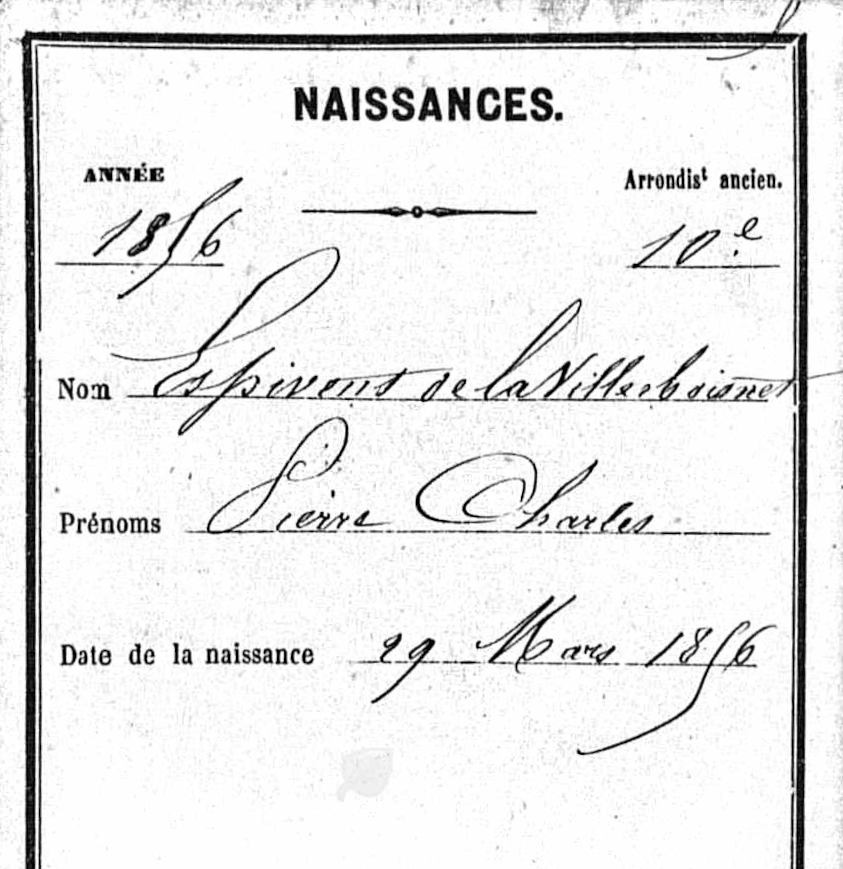 NAISSANCES.
ANNÉE Arrondist ancien.
1856 10e
Nom Espivent de la Villeboisnet
Prénoms Pierre Charles
Date de la naissance 29 Mars 1856